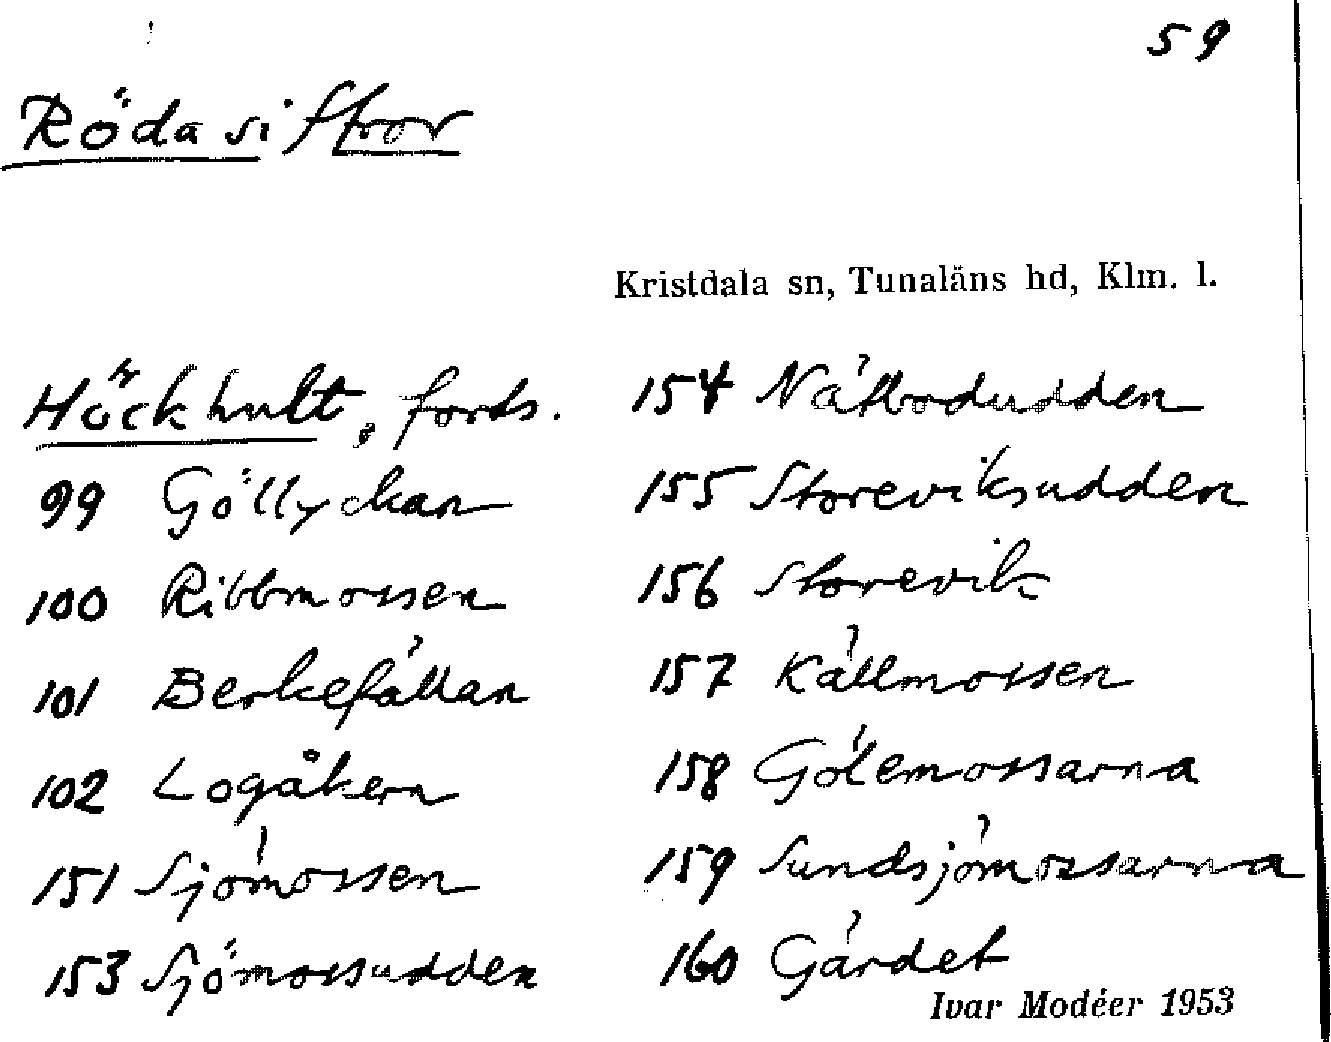 59
Röda siffror
Kristdala sn, Tunaläns hd, Klm. l.
Höckhult, forts.
99 Göllyckan
100 Ribbmossen
101 Berkefällan
102 Logåkern
151 Sjömossen
153 Sjömossudden
154 Nätbodudden
155 Storeviksudden
156 Storevik
157 Källmossen
158 Gölemossarna
159 Sundsjömossarna
160 Gärdet
Ivar Modéer 1953